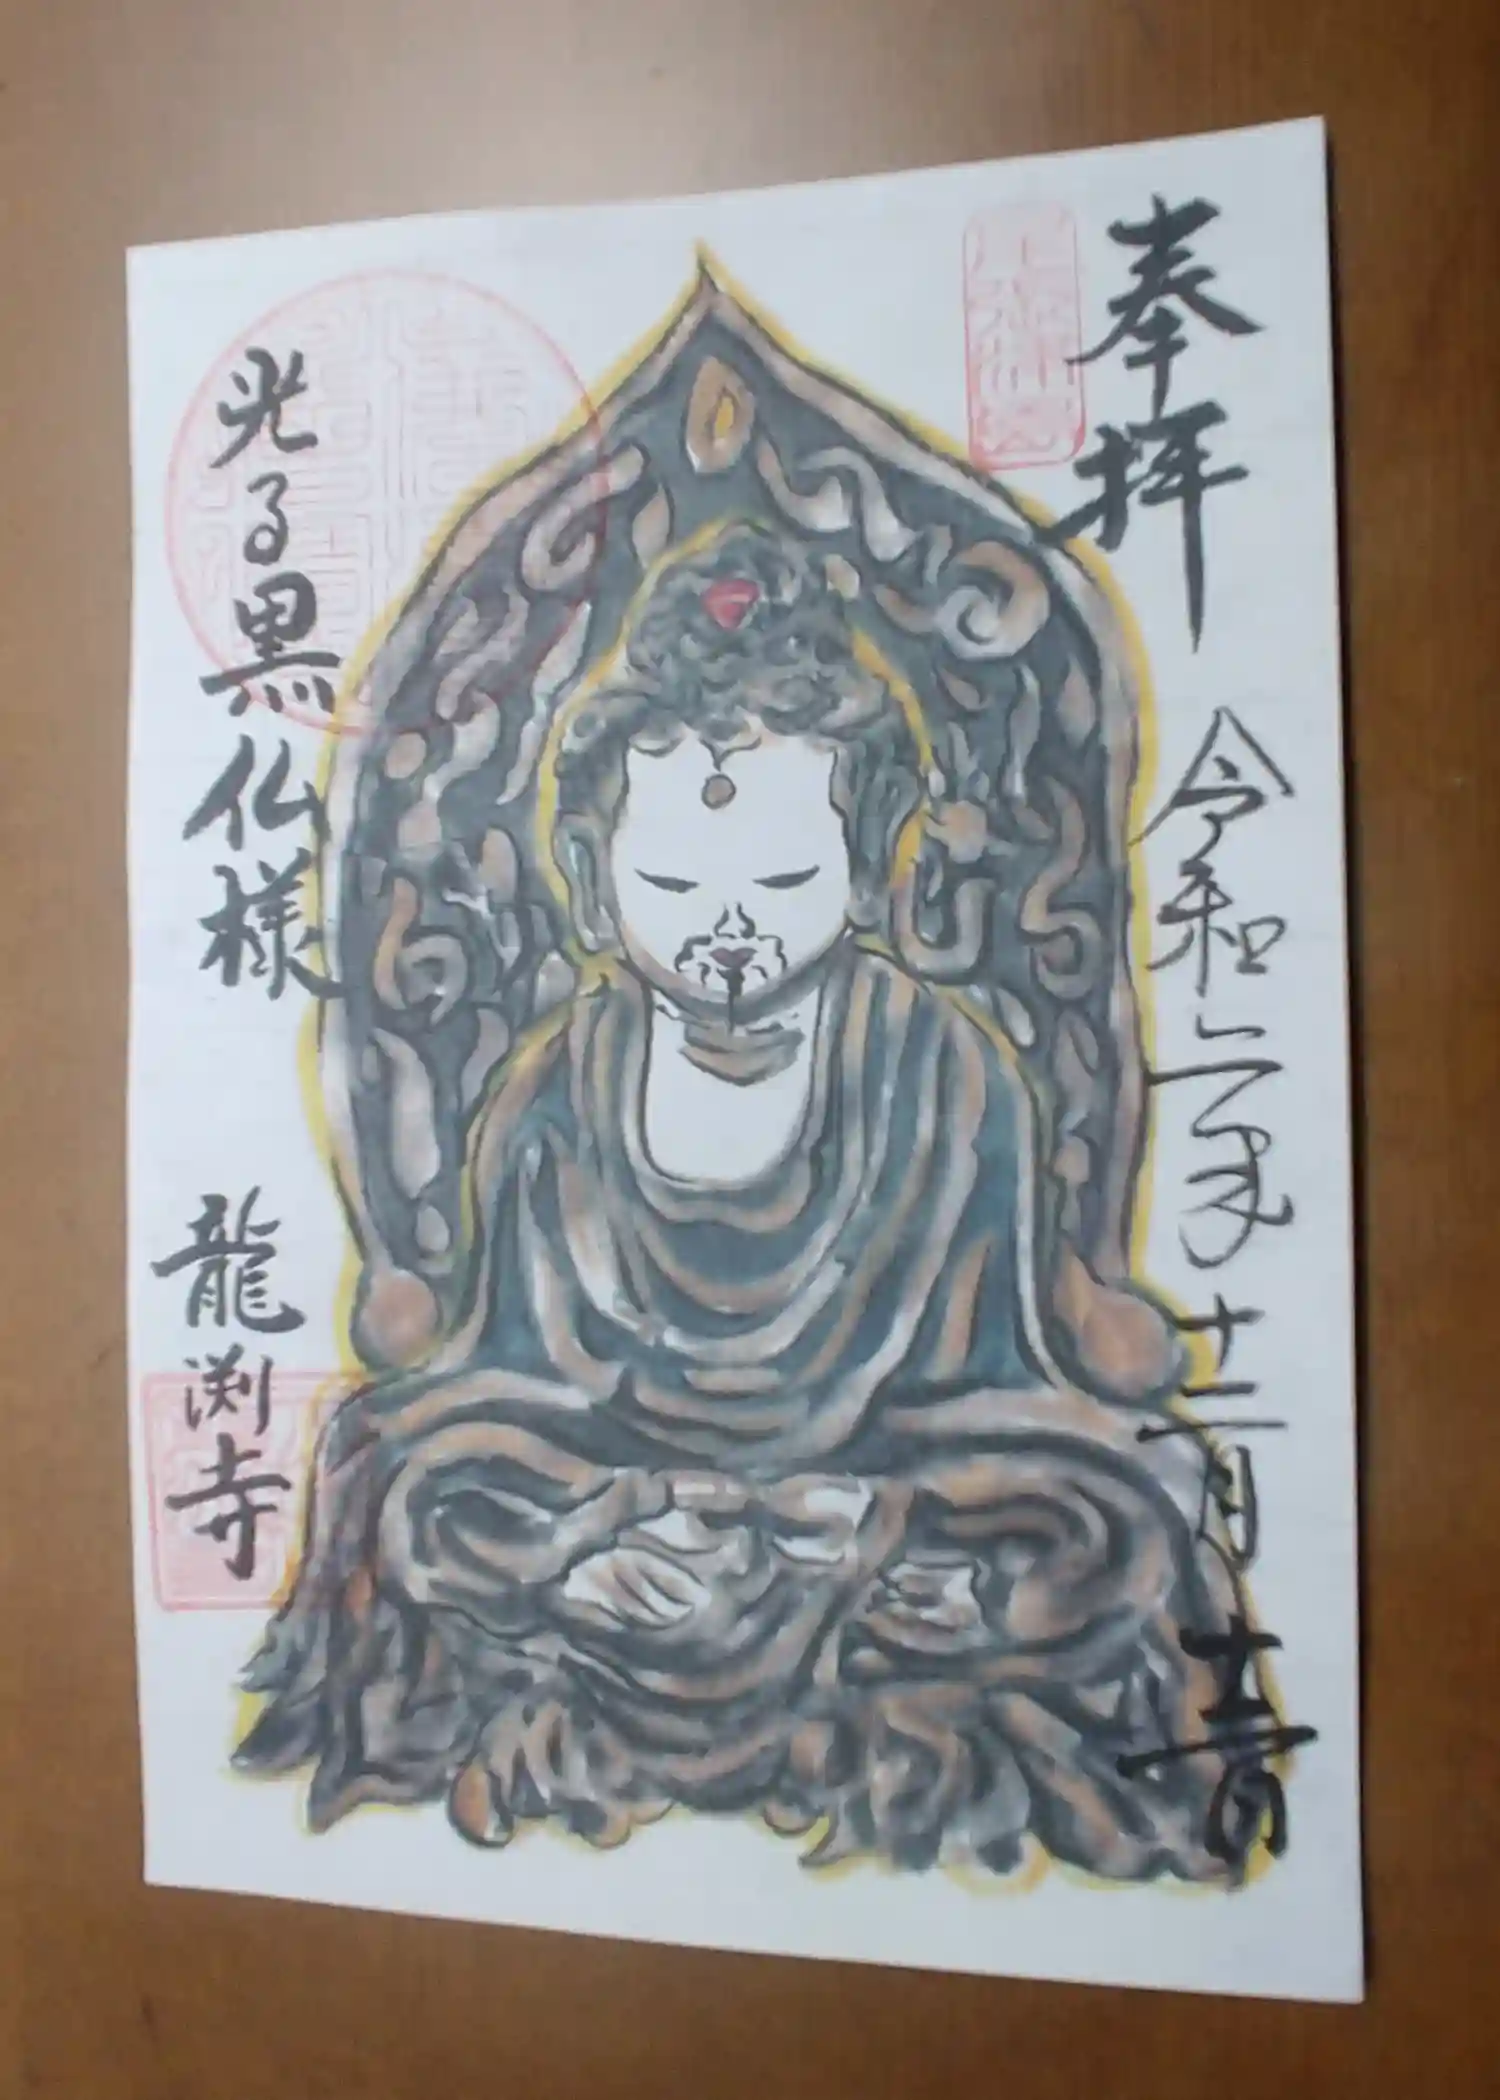 奉拝
令和二年十二月十二日
光る黒仏様
龍渕寺